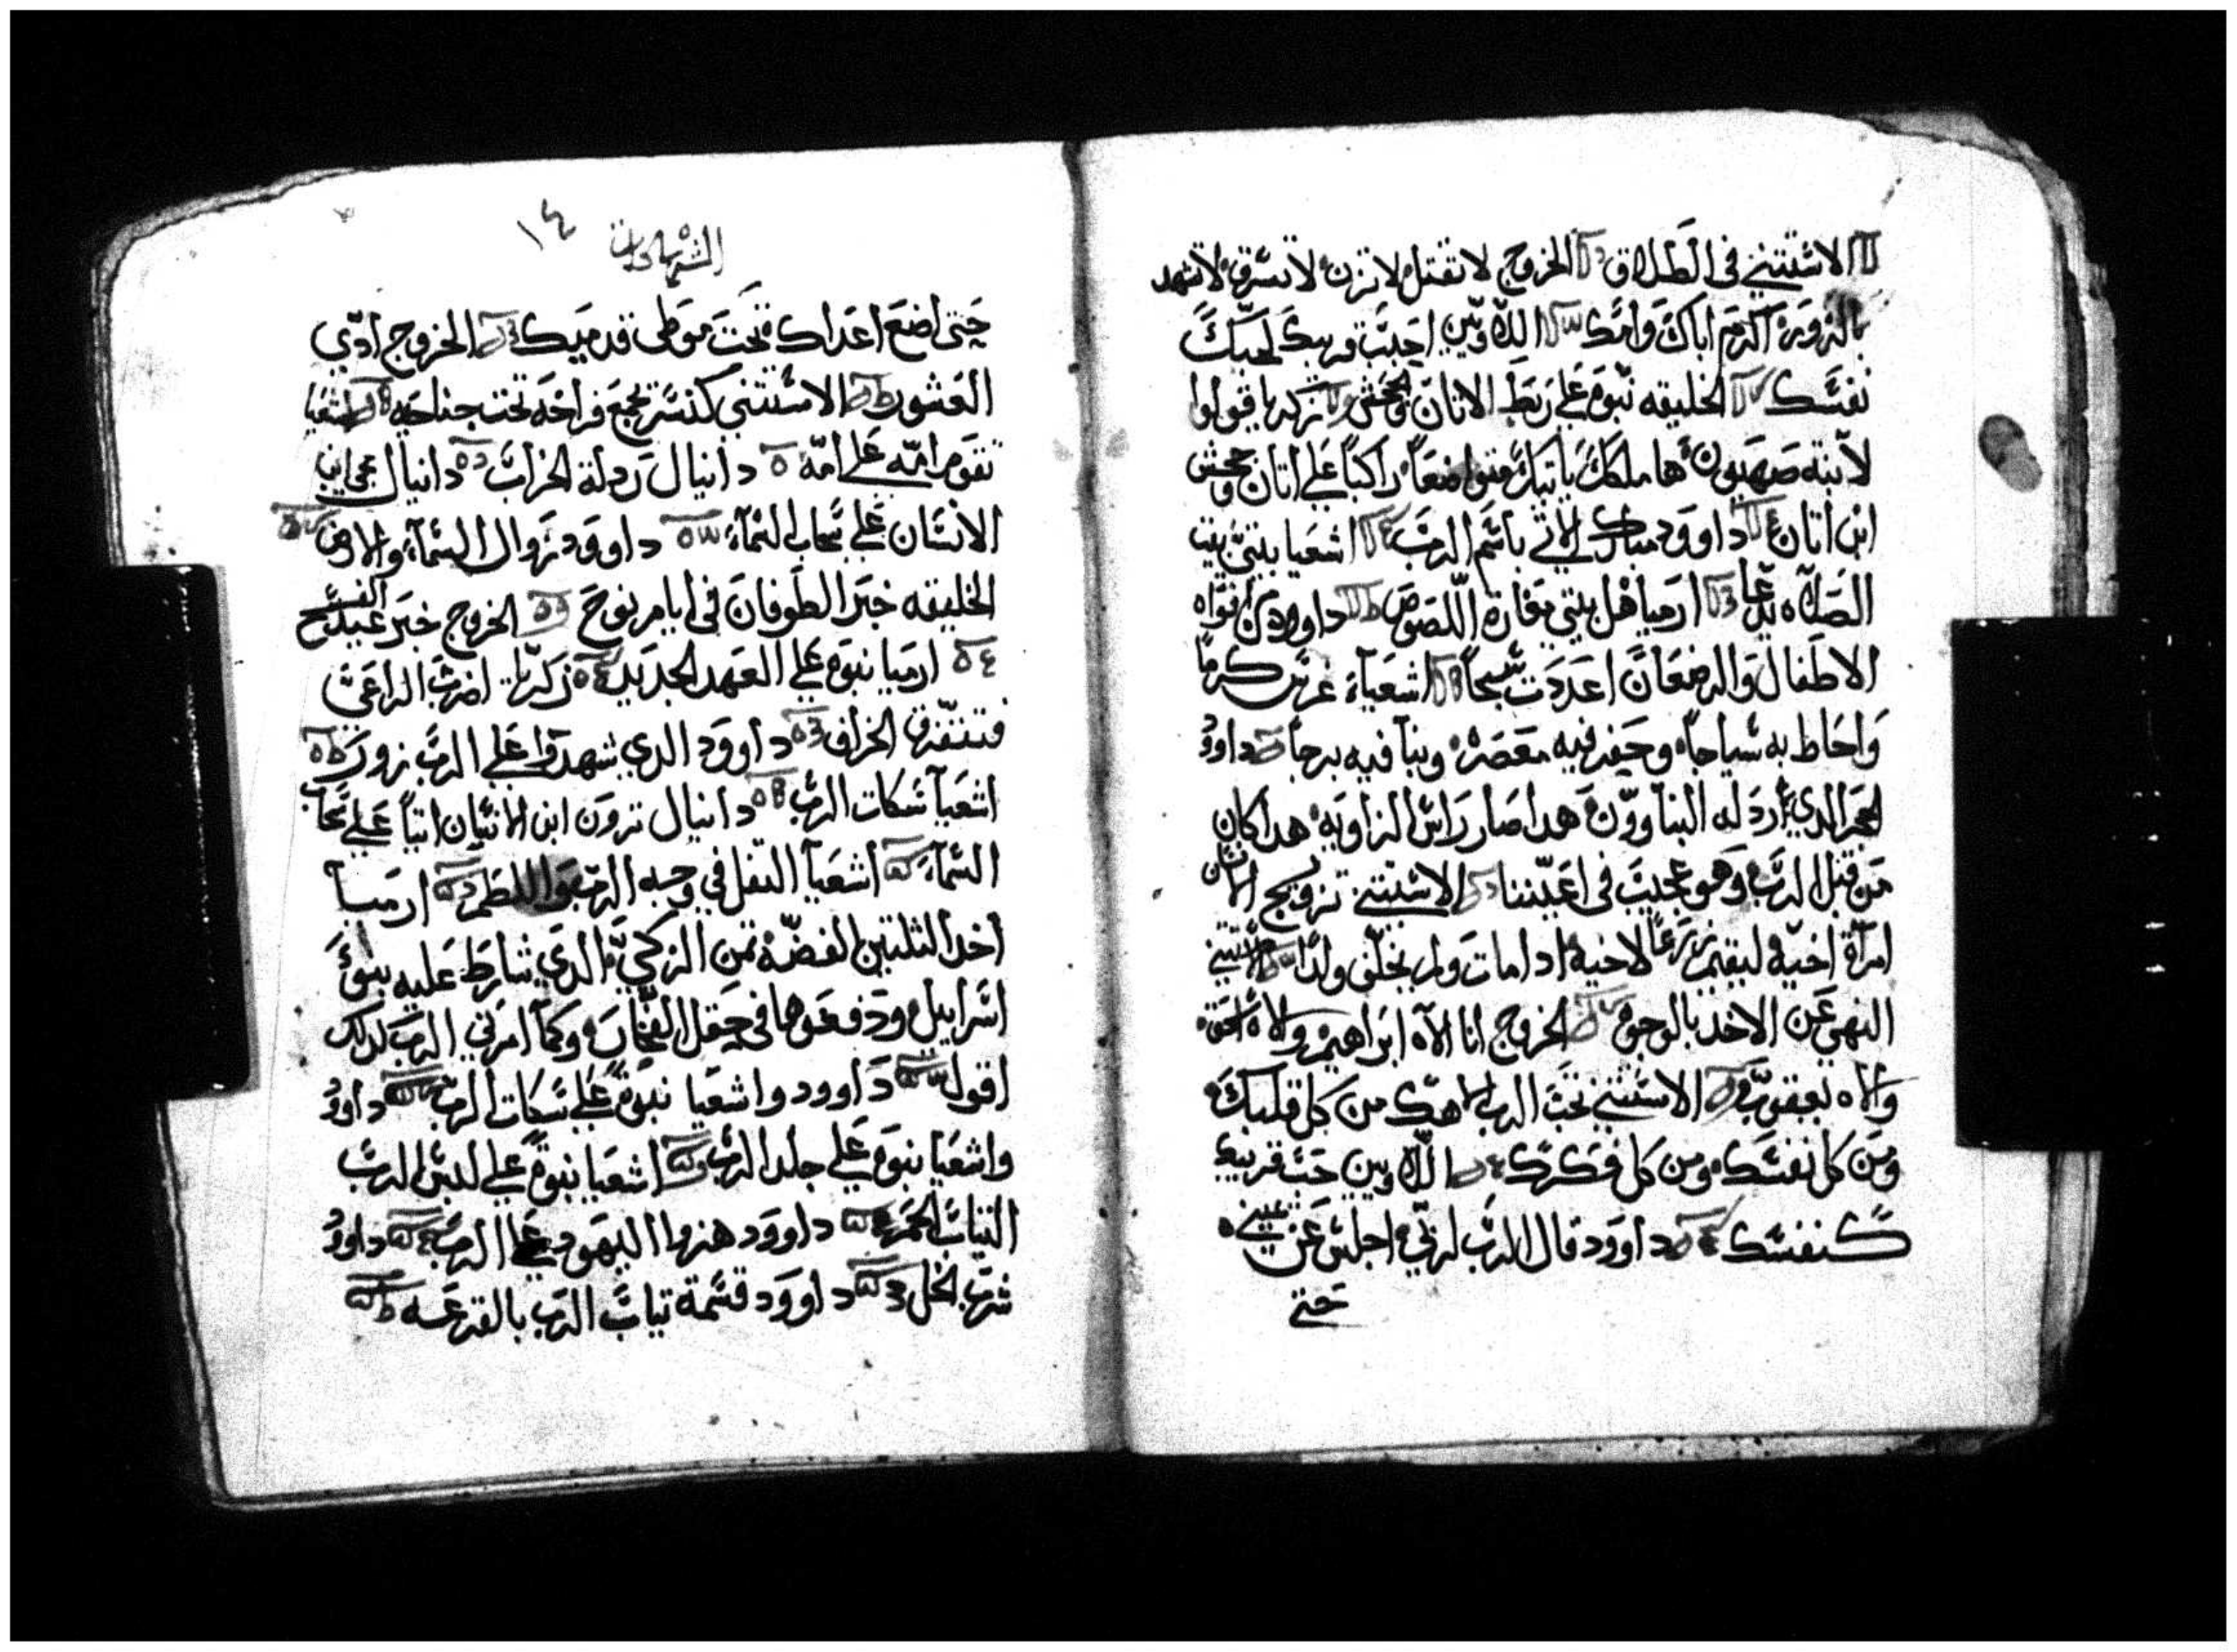 الاستثني في الطلاق الخروج لا تقتل لا تزن لا تسرق لا تشهد
بالزور اكرم اباك وامك اللاويين احبب قريبك لحبك
نفسك الخليقه نبوه علي ربط الاتان والجحش زكريا قولوا
لابنة صهيون ها ملكك ياتيك متواضعاً راكباً علي اتان وجحش
ابن اتان داوود مبارك الاتي باسم الرب اشعيا بيتي بيت
الصلاه يدعا ارميا هل بيتي مغارة اللصوص داوود من افواه
الاطفال والرضعان اعددت سبحاً اشعياء غرس كرماً
واحاط به سياجاً وحفر فيه معصره وبنا فيه برجاً داوود
الحجر الدي اردله البناوون هدا صار راس الزاويه هدا كان
من قبل الرب وهو عجيب في اعيننا الاستثني تزويج الانسان
امراة اخيه ليقيم زرعاً لاخيه ادا مات ولم يخلف ولداً الاستثني
النهي عن الاخد بالوجوه الخروج انا الاه ابراهيم والاه اسحق
والاه يعقوب الاستثني تحب الرب الاهك من كل قلبك
ومن كل نفسك ومن كل فكرك اللاويين حب قريبك
كنفسك داوود قال الرب لربي اجلس عن يميني
حتي
١٤
حتي اضع اعداك تحت موطي قدميك الخروج ادي
العشور الاستثني كنسر تجمع فراخه تحت جناحيه اشعيا
تقوم امه علي امه دانيال ردلة الخراب دانيال مجي ابن
الانسان علي سحاب السماء داوود زوال السماء والارض
الخليقه خبر الطوفان في ايام نوح الخروج خبر عيد الفسح
ارميا نبوه علي العهد الجديد زكريا اضرب الراعي
فتتفرق الخراف داوود الدي شهدوا علي الرب زور
اشعيا شكات الرب دانيال ترون ابن الانسان اتياً علي سحاب
السماء اشعيا التفل في وجه الرب واللطم ارميا
اخدا الثلتين الفضه تمن الزكي الدي شارط عليه بنو
اسراييل ودفعوها في حقل الفخاره وكما امرني الرب كدلك
اقول داوود واشعيا نبوة علي شكات الرب داوود
واشعيا نبوه علي جلد الرب اشعيا نبوة علي لبس الرب
التياب الحمر داوود هزوا اليهود علي الرب داوود
شرب الخل داوود قسمة تياب الرب بالقرعه